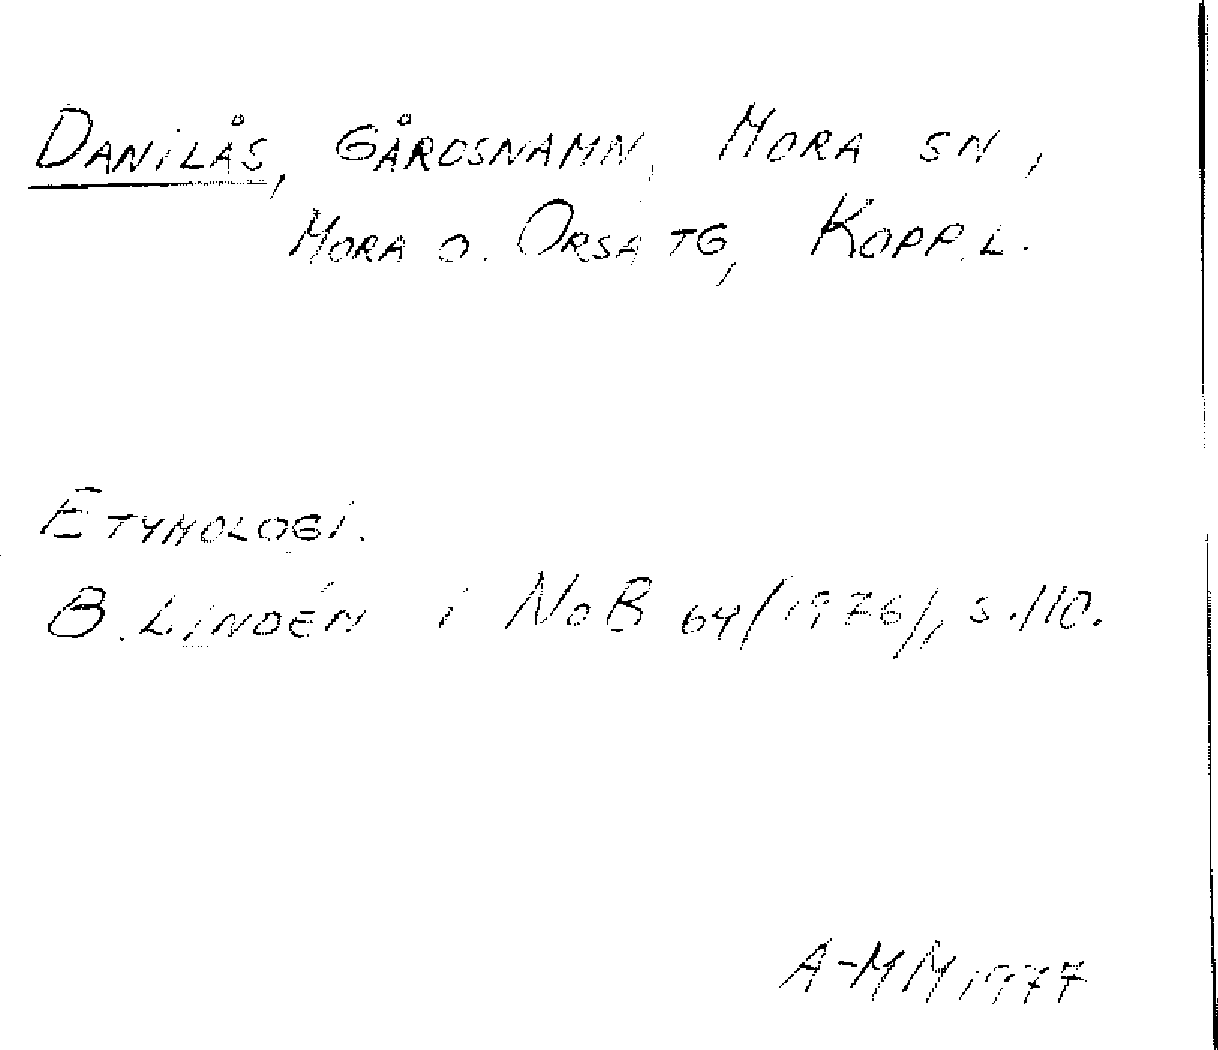 DANILÅS, GÅRDSNAMN, MORA SN,
MORA O. ORSA TG, KOPP.L.
ETYMOLOGI.
B. LINDÉN i NoB 64/1976/, S.110.
A-MM 1977